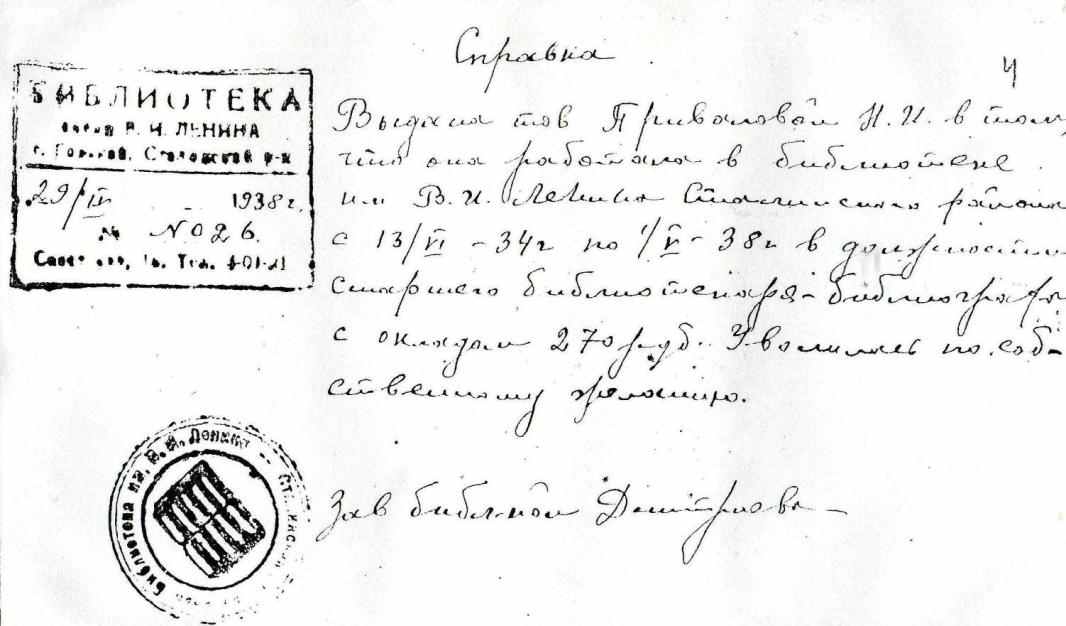 Справка
4
БИБЛИОТЕКА
имени В. И. ЛЕНИНА
г. Горький, Сталинский р-н
29/IV 1938 г.
№ N026.
Тел. 4-01-21
Выдана тов Приваловой Н.И. в том,
что она работала в библиотеке
им В.И. Ленина Сталинского района
с 13/VI -34г по 1/V - 38г в должности
старшего библиотекаря-библиографа
с окладом 270 руб. Уволилась по соб-
ственному желанию.
Зав библ-кой Дмитриева
Библиотека им. В. И. Ленина